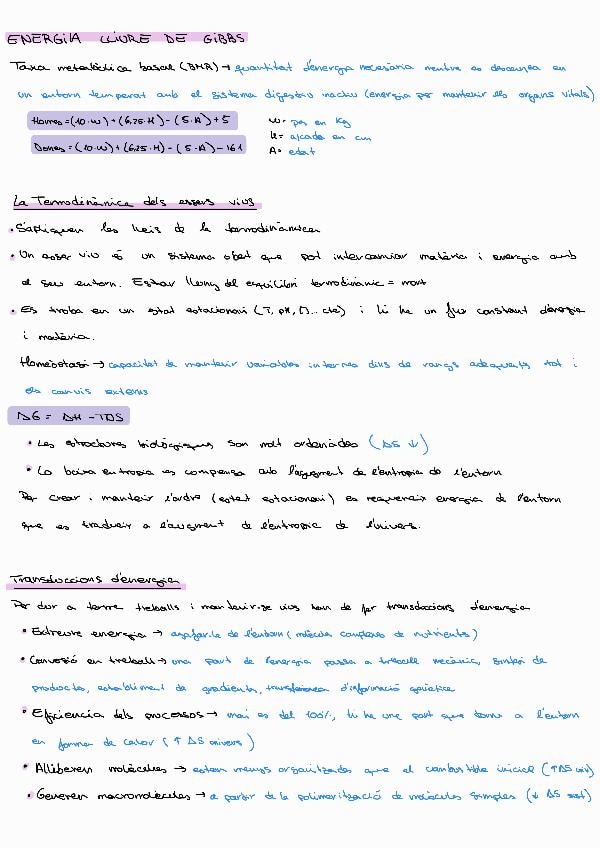 ENERGIA LLIURE DE GIBBS
Taxa metabòlica basal (BMR) → quantitat d'energia necesària mentre es descansa en
un entorn temperat amb el sistema digestiu inactiu (energia per mantenir els organs vitals)
Homes = (10·W) + (6,25·H) - (5·A) + 5
W = pes en Kg
H = alçada en cm
Dones = (10·W) + (6,25·H) - (5·A) - 161
A = edat
La Termodinàmica dels essers vius
• S'apliquen les lleis de la termodinàmica
• Un esser viu és un sistema obert que pot intercanviar matèria i energia amb
el seu entorn. Estar lluny del equilibri termodinàmic = mort
• Es troba en un estat estacionari (T, pH, Π... cte) i hi ha un flux constant d'energia
i matèria.
Homeòstasi → capacitat de mantenir variables internes dins de rangs adequats tot i
els canvis externs
ΔG = ΔH - TΔS
• Les estructures biològiques son molt ordenades (ΔS ↓)
• La baixa entropia es compensa amb l'augment de l'entropia de l'entorn
Per crear i mantenir l'ordre (estat estacionari) es requereix energia de l'entorn
que es tradueix a l'augment de l'entropia de l'univers.
Transduccions d'energia
Per dur a terme treballs i mantenir-se vius han de fer transduccions d'energia
• Extreure energia → agafar-la de l'entorn (molècules complexes de nutrients)
• Convesió en treball → una part de l'energia passa a treball mecànic, síntesi de
productes, establiment de gradients, transferència d'informació genètica
• Eficiencia dels processos → mai es del 100%, hi ha una part que torna a l'entorn
en forma de calor (↑ ΔS univers)
• Alliberen molècules → estan menys organitzades que el combustible inicial (↑ΔS univ)
• Generen macromolècules → a partir de la polimerització de molècules simples (↓ ΔS sist)